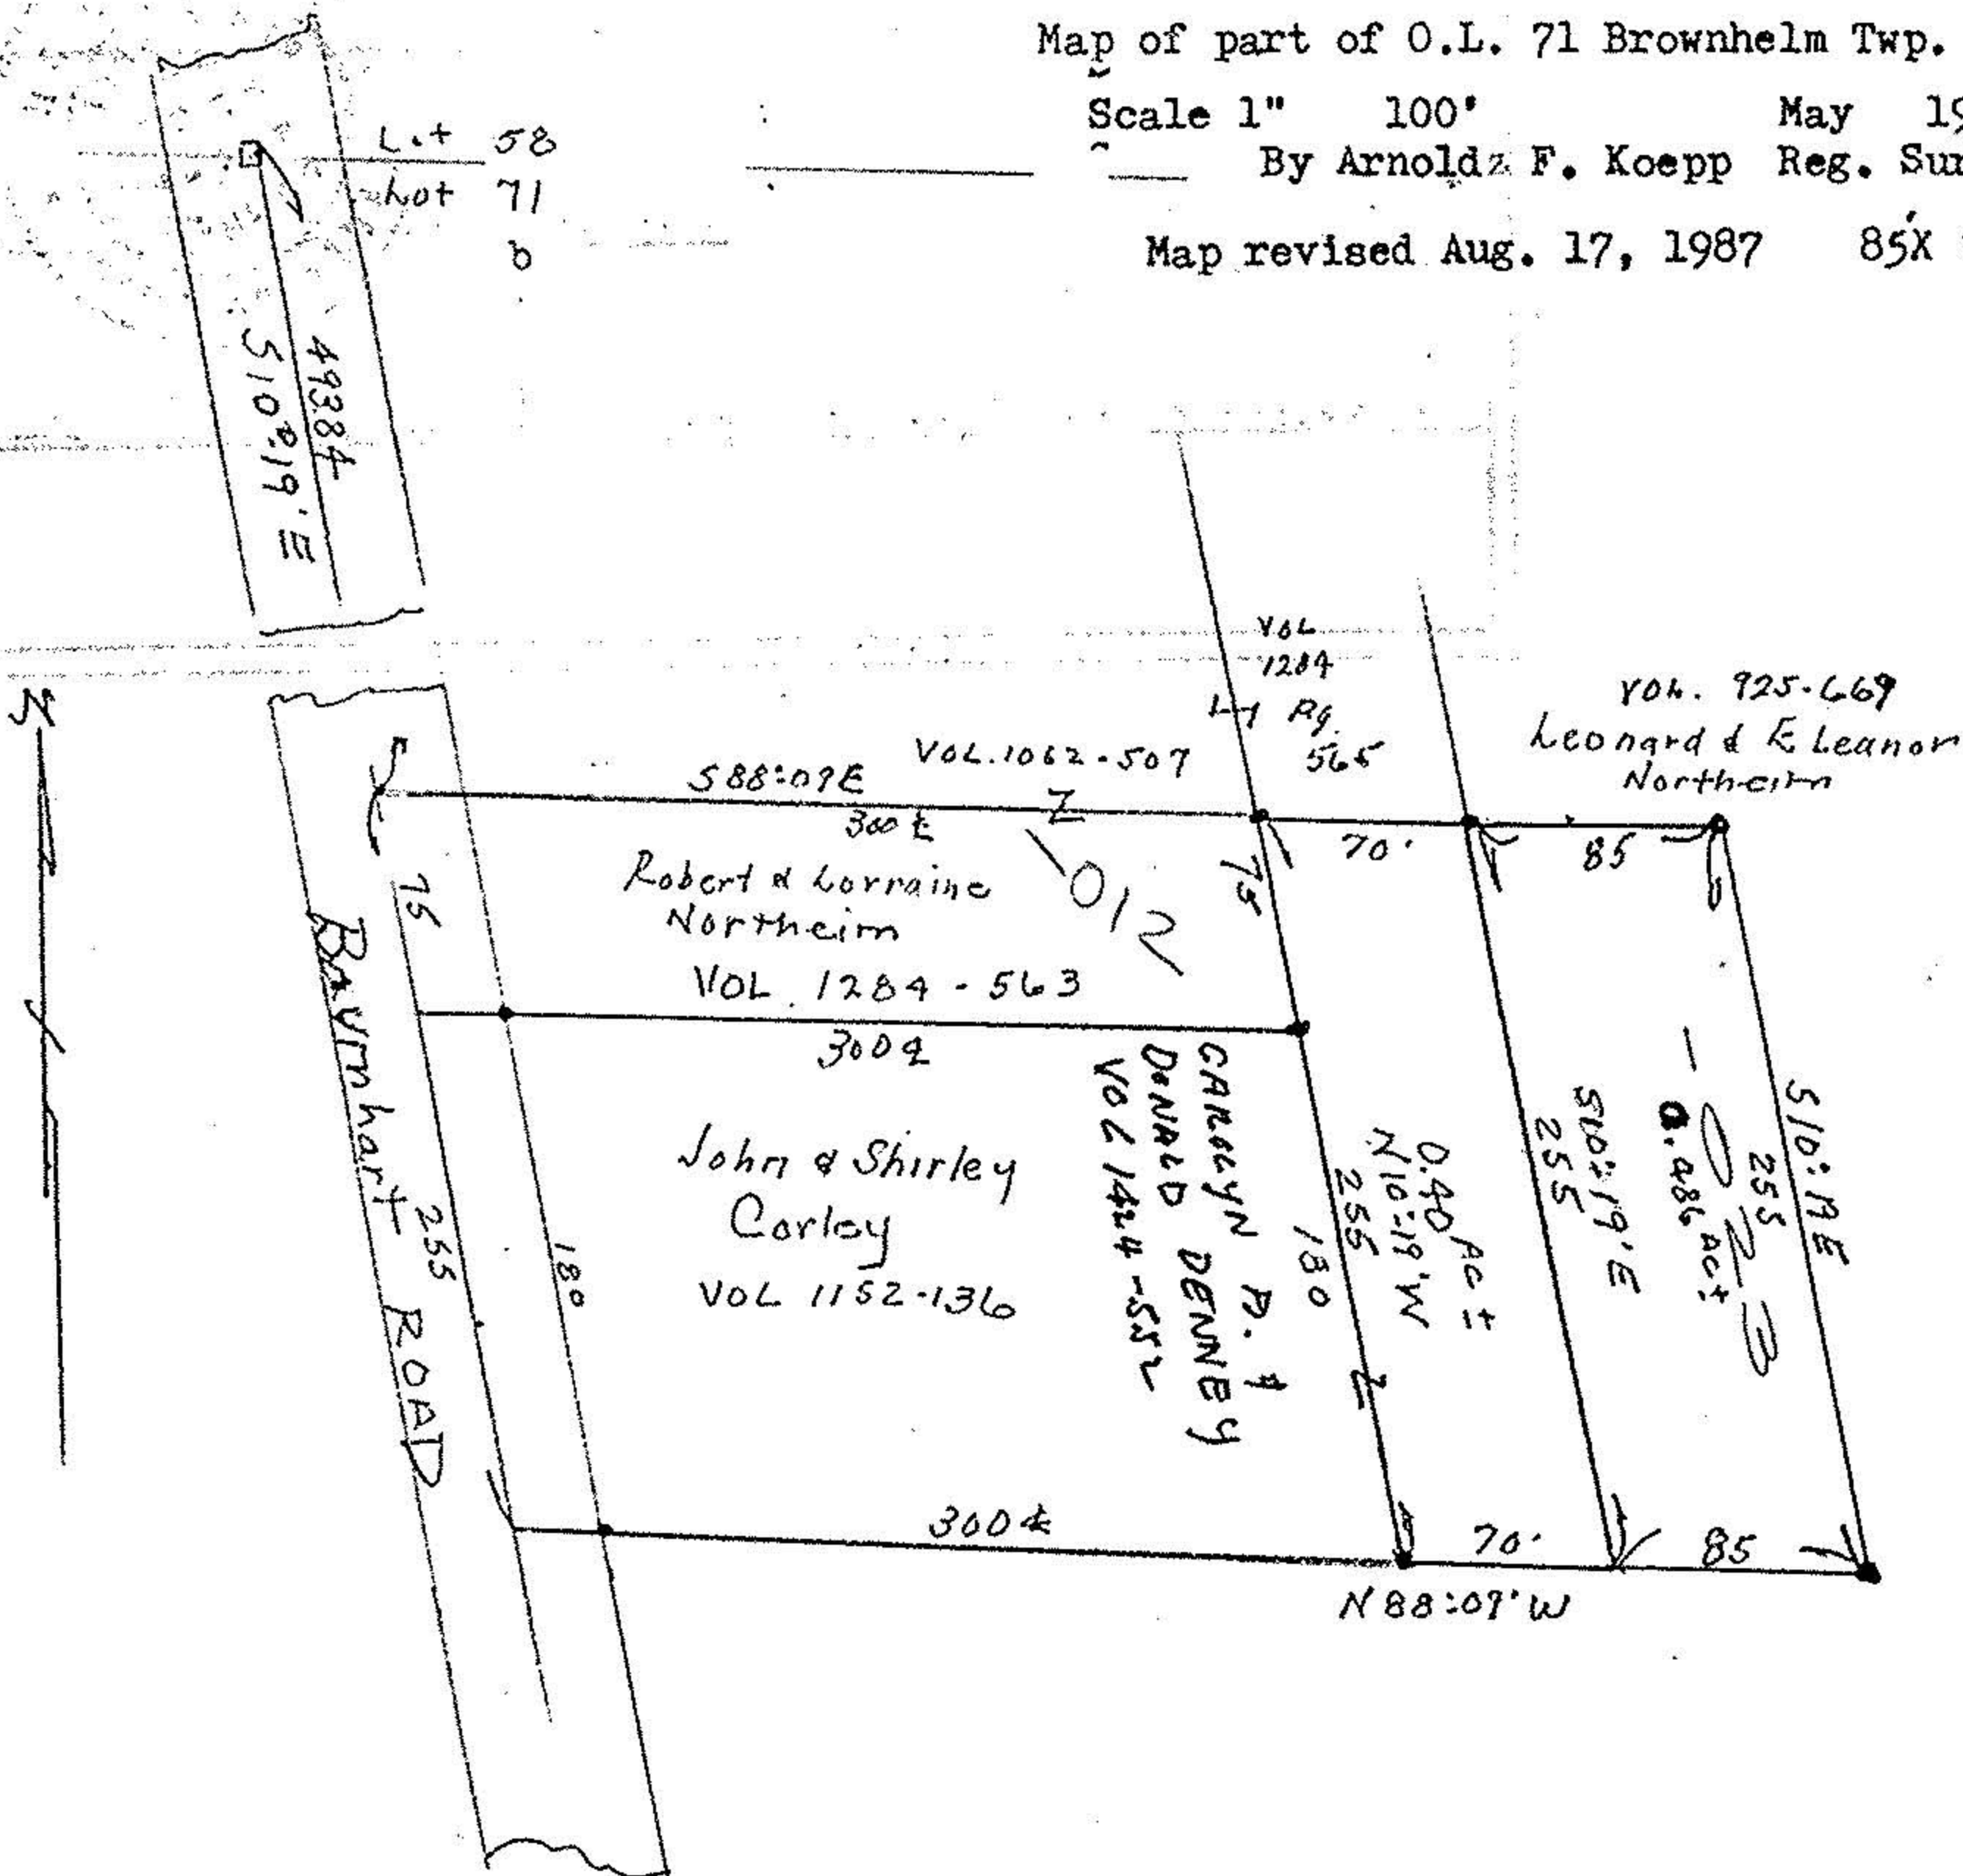 Map of part of O.L. 71 Brownhelm Twp.
Scale 1" 100'
May 19
By Arnold F. Koepp Reg. Sur
Map revised Aug. 17, 1987 85'X
Lot 58
Lot 71
b
493.84
S 10°:19' E
VOL
1284
Pg.
565
VOL. 925-669
Leonard & Eleanor
Northeim
VOL. 1062-507
S 88:09 E
300 ±
Z
70'
85
Robert & Lorraine
Northeim
VOL. 1284 - 563
012
75
75
300 ±
Baumhart ROAD
255
180
John & Shirley
Corley
VOL 1152-136
CAROLYN D. &
DONALD DENNEY
VOL 1424-552
180
255
N 10:19' W
0.40 Ac ±
255
S 10:19' E
0.486 Ac ±
- 023
255
S 10:19 E
300 ±
70'
85
N 88:09' W